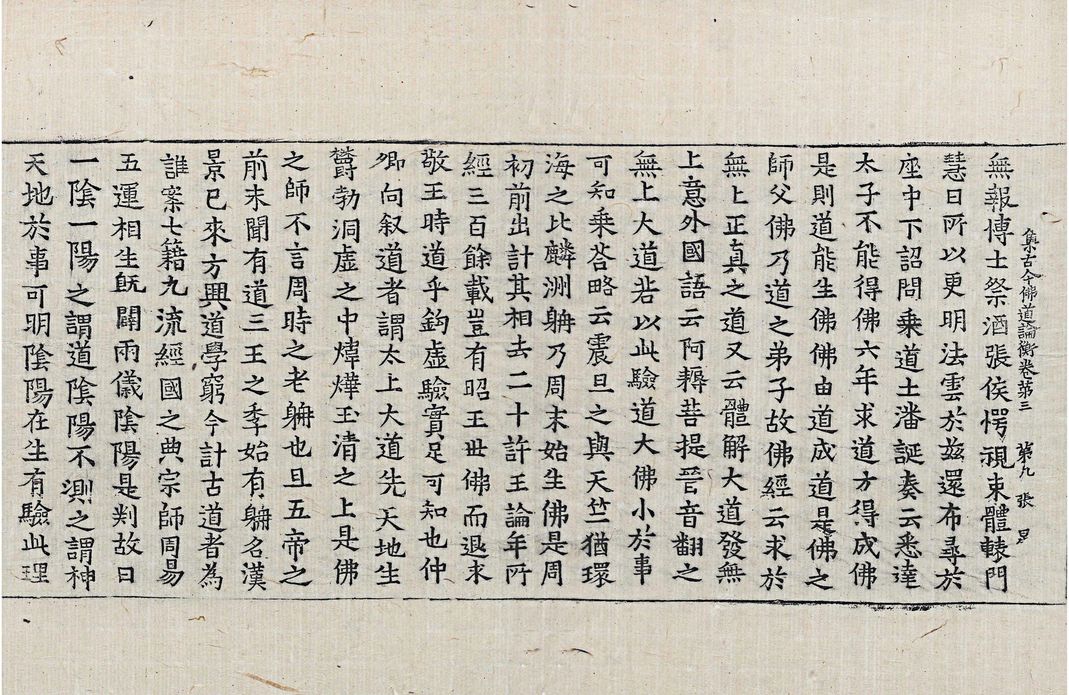 集古今佛道論衡卷第三 第九 張 旲
無報博士祭酒張侯愕視束體轅門
慧日所以更明法雲於兹還布尋於
座中下詔問乗道士潘誕奏云悉達
太子不能得佛六年求道方得成佛
是則道能生佛佛由道成道是佛之
師父佛乃道之弟子故佛經云求於
無上正真之道又云體解大道發無
上意外國語云阿耨菩提晉音翻之
無上大道若以此驗道大佛小於事
可知乗荅略云震旦之與天竺猶環
海之比麟洲聃乃周末始生佛是周
初前出計其相去二十許王論年所
經三百餘載豈有昭王世佛而退求
敬王時道乎鈎虚驗實足可知也仲
卿向叙道者謂太上大道先天地生
欝勃洞虚之中煒燁玉清之上是佛
之師不言周時之老聃也且五帝之
前未聞有道三王之季始有聃名漢
景已來方興道學窮今計古道者為
誰案七籍九流經國之典宗師周易
五運相生旣闢兩儀陰陽是判故曰
一陰一陽之謂道陰陽不測之謂神
天地於事可明陰陽在生有驗此理